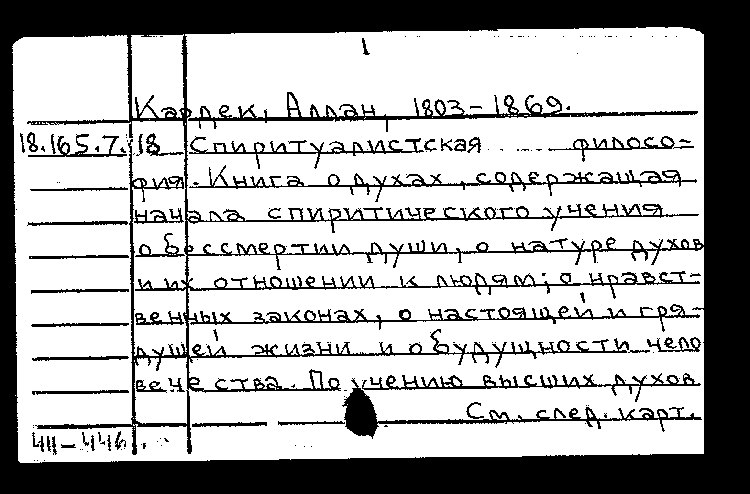 1
Кардек, Аллан, 1803-1869.
18.165.7.18 Спиритуалистская филосо-
фия. Книга о духах, содержащая
начала спиритического учения
о бессмертии души, о натуре духов
и их отношении к людям; о нравст-
венных законах, о настоящей и гря-
дущей жизни и о будущности чело
вечества. По учению высших духов
См. след. карт.